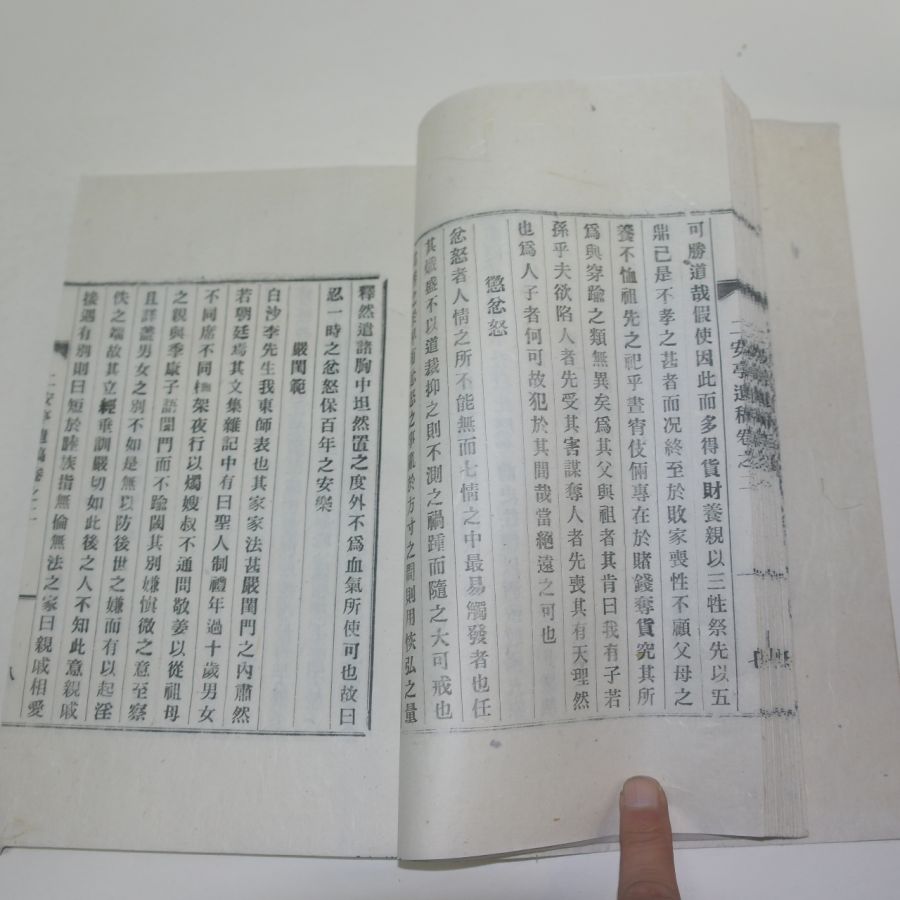 二安亭遺稿卷之二
可勝道哉假使因此而多得貨財養親以三牲祭先以五
鼎已是不孝之甚者而况終至於敗家喪性不顧父母之
養不恤祖先之祀乎晝宵伎倆專在於賭錢奪貨究其所
爲與穿踰之類無異矣爲其父與祖者其肯曰我有子若
孫乎夫欲陷人者先受其害謀奪人者先喪其有天理然
也爲人子者何可故犯於其間哉當絕遠之可也
懲忿怒
忿怒者人情之所不能無而七情之中最易觸發者也任
其熾盛不以道裁抑之則不測之禍踵而隨之大可戒也
忿怒之
於方寸之間則用恢弘之量
釋然遣諸胸中坦然置之度外不爲血氣所使可也故曰
忍一時之忿怒保百年之安樂
嚴閨範
白沙李先生我東師表也其家家法甚嚴閨門之內肅然
若朝廷焉其文集雜記中有曰聖人制禮年過十歲男女
不同席不同椸架夜行以燭嫂叔不通問敬姜以從祖母
之親與季康子語闢門而不踰閾其別嫌愼微之意至察
且詳蓋男女之別不如是無以防後世之嫌而有以起淫
佚之端故其立經垂訓嚴切如此後之人不知此意親戚
接遇有別則曰短於睦族指無倫無法之家曰親戚相愛
二安亭遺稿卷之二
八